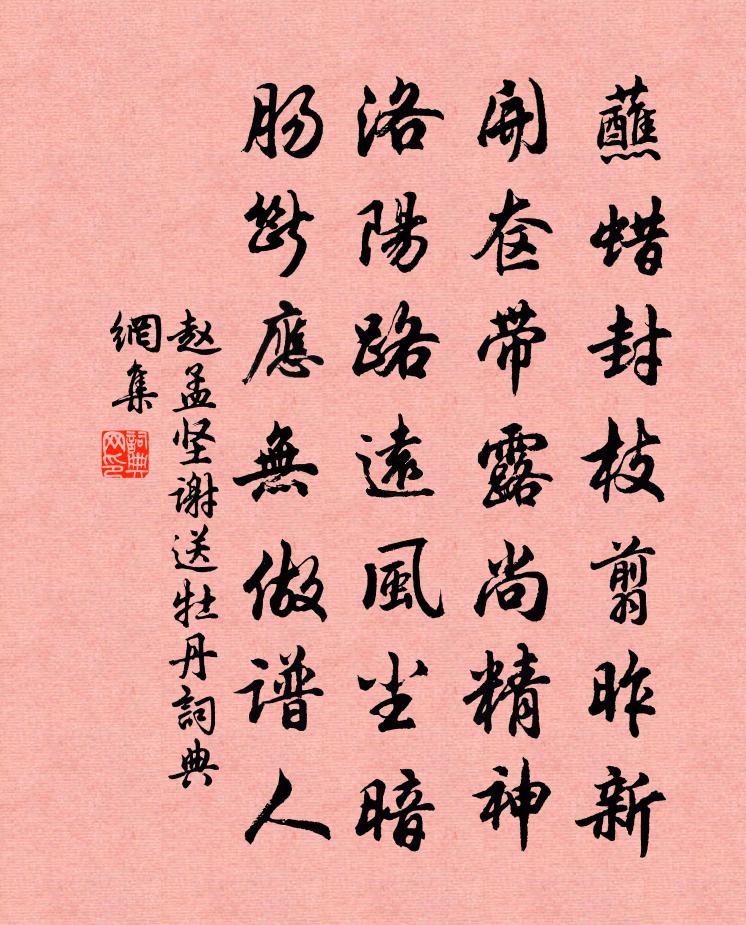 蘸蜡封枝剪昨新
開奁带露尚精神
洛陽路遠風尘暗
肠斷應無做谱人
赵孟坚谢送牡丹詞典
網集
詞典
网印